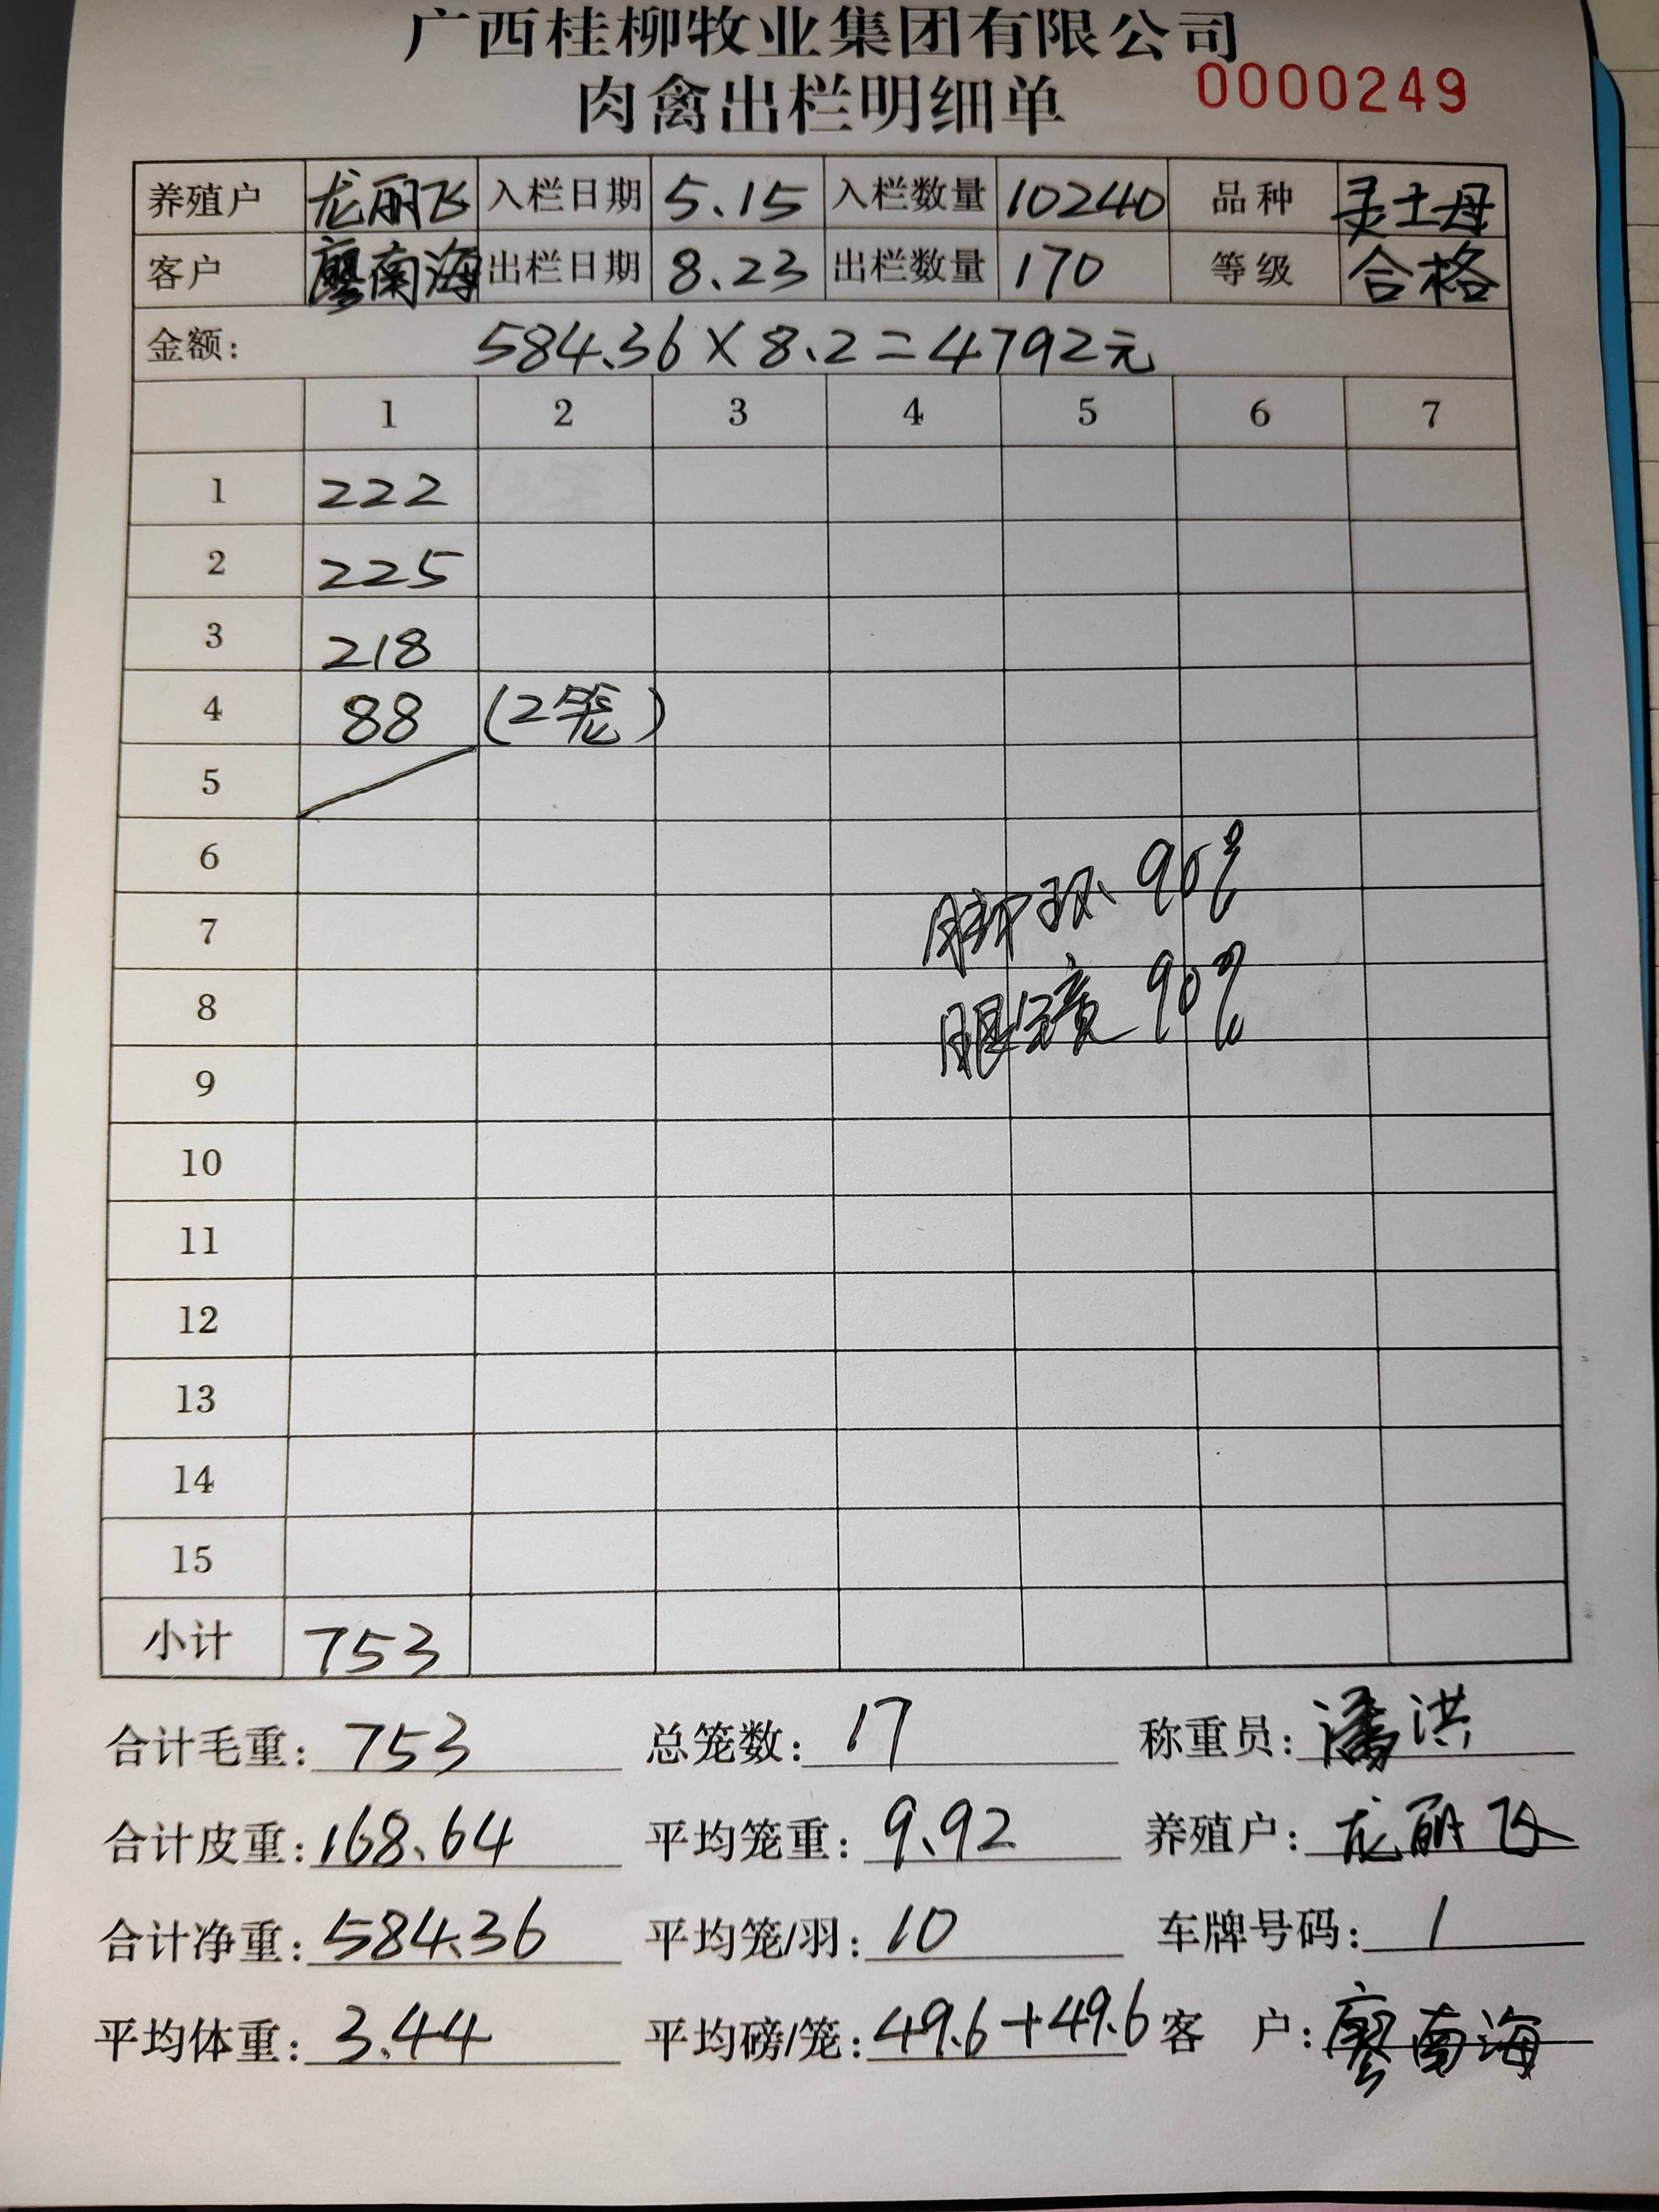 广西桂柳牧业集团有限公司
肉禽出栏明细单 0000249
养殖户 龙丽飞 入栏日期 5.15 入栏数量 10240 品种 灵土母
客户 廖南海 出栏日期 8.23 出栏数量 170 等级 合格
金额: 584.36×8.2=4792元
1 2 3 4 5 6 7
1 222
2 225
3 218
4 88 (2笼)
5
6
脚环 90%
7
眼镜 90%
8
9
10
11
12
13
14
15
小计 753
合计毛重: 753 总笼数: 17 称重员: 潘洪
合计皮重: 168.64 平均笼重: 9.92 养殖户: 龙丽飞
合计净重: 584.36 平均笼/羽: 10 车牌号码: 1
平均体重: 3.44 平均磅/笼: 49.6+49.6 客 户: 廖南海